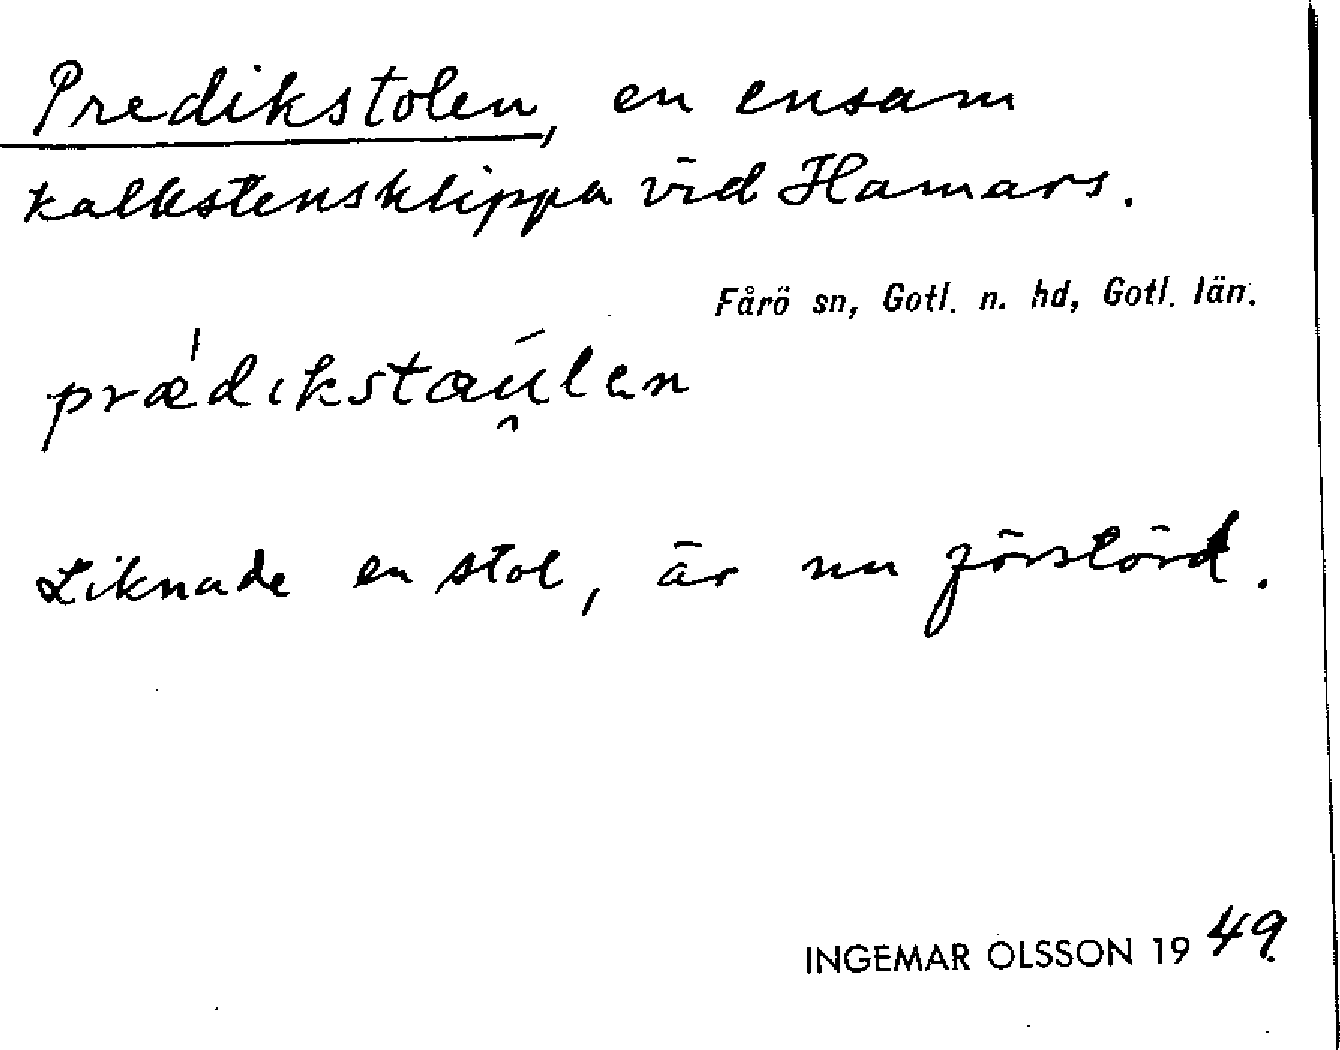 Predikstolen, en ensam
kalkstensklippa vid Hamars.
Fårö sn, Gotl. n. hd, Gotl. län.
prædikstaulen
Liknade en stol, är nu förstörd.
INGEMAR OLSSON 1949.